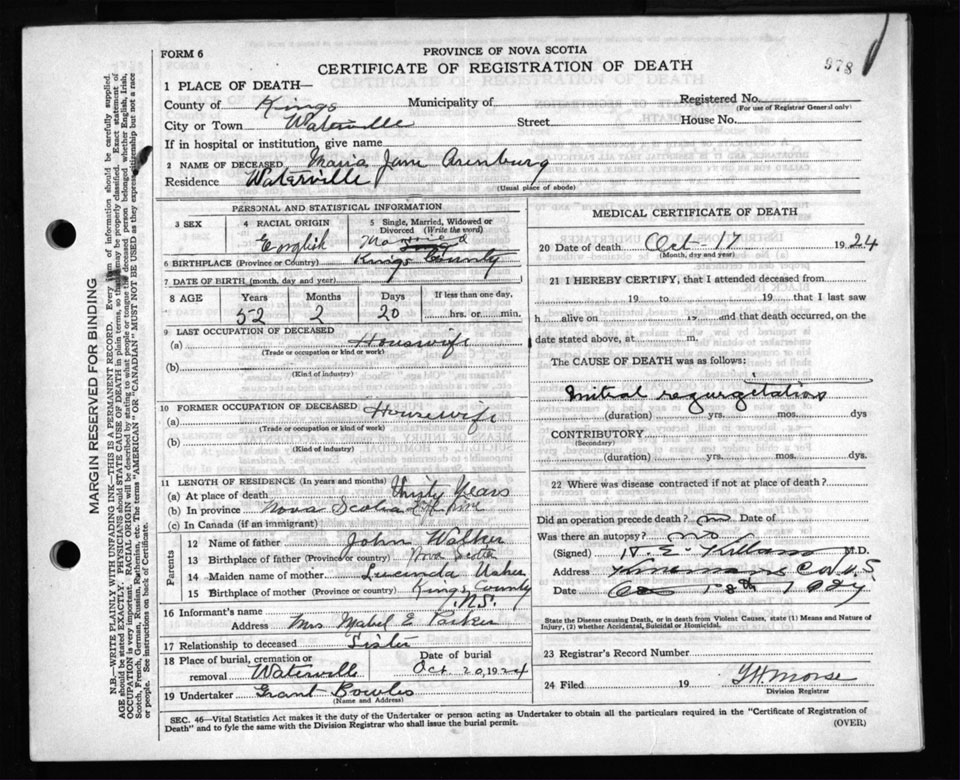 FORM 6
PROVINCE OF NOVA SCOTIA
CERTIFICATE OF REGISTRATION OF DEATH
978
1 PLACE OF DEATH—
County of Kings Municipality of Registered No.
(For use of Registrar General only)
City or Town Waterville Street House No.
If in hospital or institution, give name
2 NAME OF DECEASED Maria Jane Arenburg
Residence Waterville
(Usual place of abode)
PERSONAL AND STATISTICAL INFORMATION
3 SEX 4 RACIAL ORIGIN 5 Single, Married, Widowed or Divorced (Write the word)
English Married
6 BIRTHPLACE (Province or Country) Kings County
7 DATE OF BIRTH (month, day and year)
8 AGE Years Months Days If less than one day,
52 2 20 hrs. or min.
9 LAST OCCUPATION OF DECEASED
(a) Houswife
(Trade or occupation or kind or work)
(b)
(Kind of industry)
10 FORMER OCCUPATION OF DECEASED
(a) Housewife
(Trade or occupation or kind of work)
(b)
(Kind of industry)
11 LENGTH OF RESIDENCE (In years and months)
(a) At place of death Thirty Years
(b) In province Nova Scotia Life time
(c) In Canada (if an immigrant)
Parents
12 Name of father John Walker
13 Birthplace of father (Province or country) Nova Scotia
14 Maiden name of mother Lucinda Usher
15 Birthplace of mother (Province or country) Kings County
N.S.
16 Informant's name
Address Mrs Mabel E Parker
17 Relationship to deceased Sister
18 Place of burial, cremation or removal Waterville Date of burial Oct 20, 1924
19 Undertaker Grant Bowles
(Name and Address)
MEDICAL CERTIFICATE OF DEATH
20 Date of death Oct - 17 1924
(Month, day and year)
21 I HEREBY CERTIFY, that I attended deceased from
19 to 19 that I last saw
h alive on 19 and that death occurred, on
date stated above, at m.
The CAUSE OF DEATH was as follows:
Mitral regurgitation
(duration) yrs. mos. dys
CONTRIBUTORY
(Secondary)
(duration) yrs. mos. dys.
22 Where was disease contracted if not at place of death?
Did an operation precede death? no Date of
Was there an autopsy? no
(Signed) M.D.
Address N.S.
Date Oct 18th 1924
State the Disease causing Death, or in death from Violent Causes, state (1) Means and Nature of
Injury, (2) whether Accidental, Suicidal or Homicidal.
23 Registrar's Record Number
24 Filed 19 Morse
Division Registrar
SEC. 46—Vital Statistics Act makes it the duty of the Undertaker or person acting as Undertaker to obtain all the particulars required in the "Certificate of Registration of
Death" and to fyle the same with the Division Registrar who shall issue the burial permit.
(OVER)
MARGIN RESERVED FOR BINDING
N.B.—WRITE PLAINLY WITH UNFADING INK—THIS IS A PERMANENT RECORD. Every item of information should be carefully supplied.
AGE should be stated EXACTLY. PHYSICIANS should STATE CAUSE OF DEATH in plain terms, so that it may be properly classified. Exact statement of
OCCUPATION is very important. RACIAL ORIGIN will be described by stating to what people or tongue the deceased person belonged whether English, Irish,
Scotch, French, German, Russian, Ruthenian, etc. The terms "AMERICAN" OR "CANADIAN" MUST NOT BE USED as they express citizenship but not a race
or people. See instructions on back of Certificate.